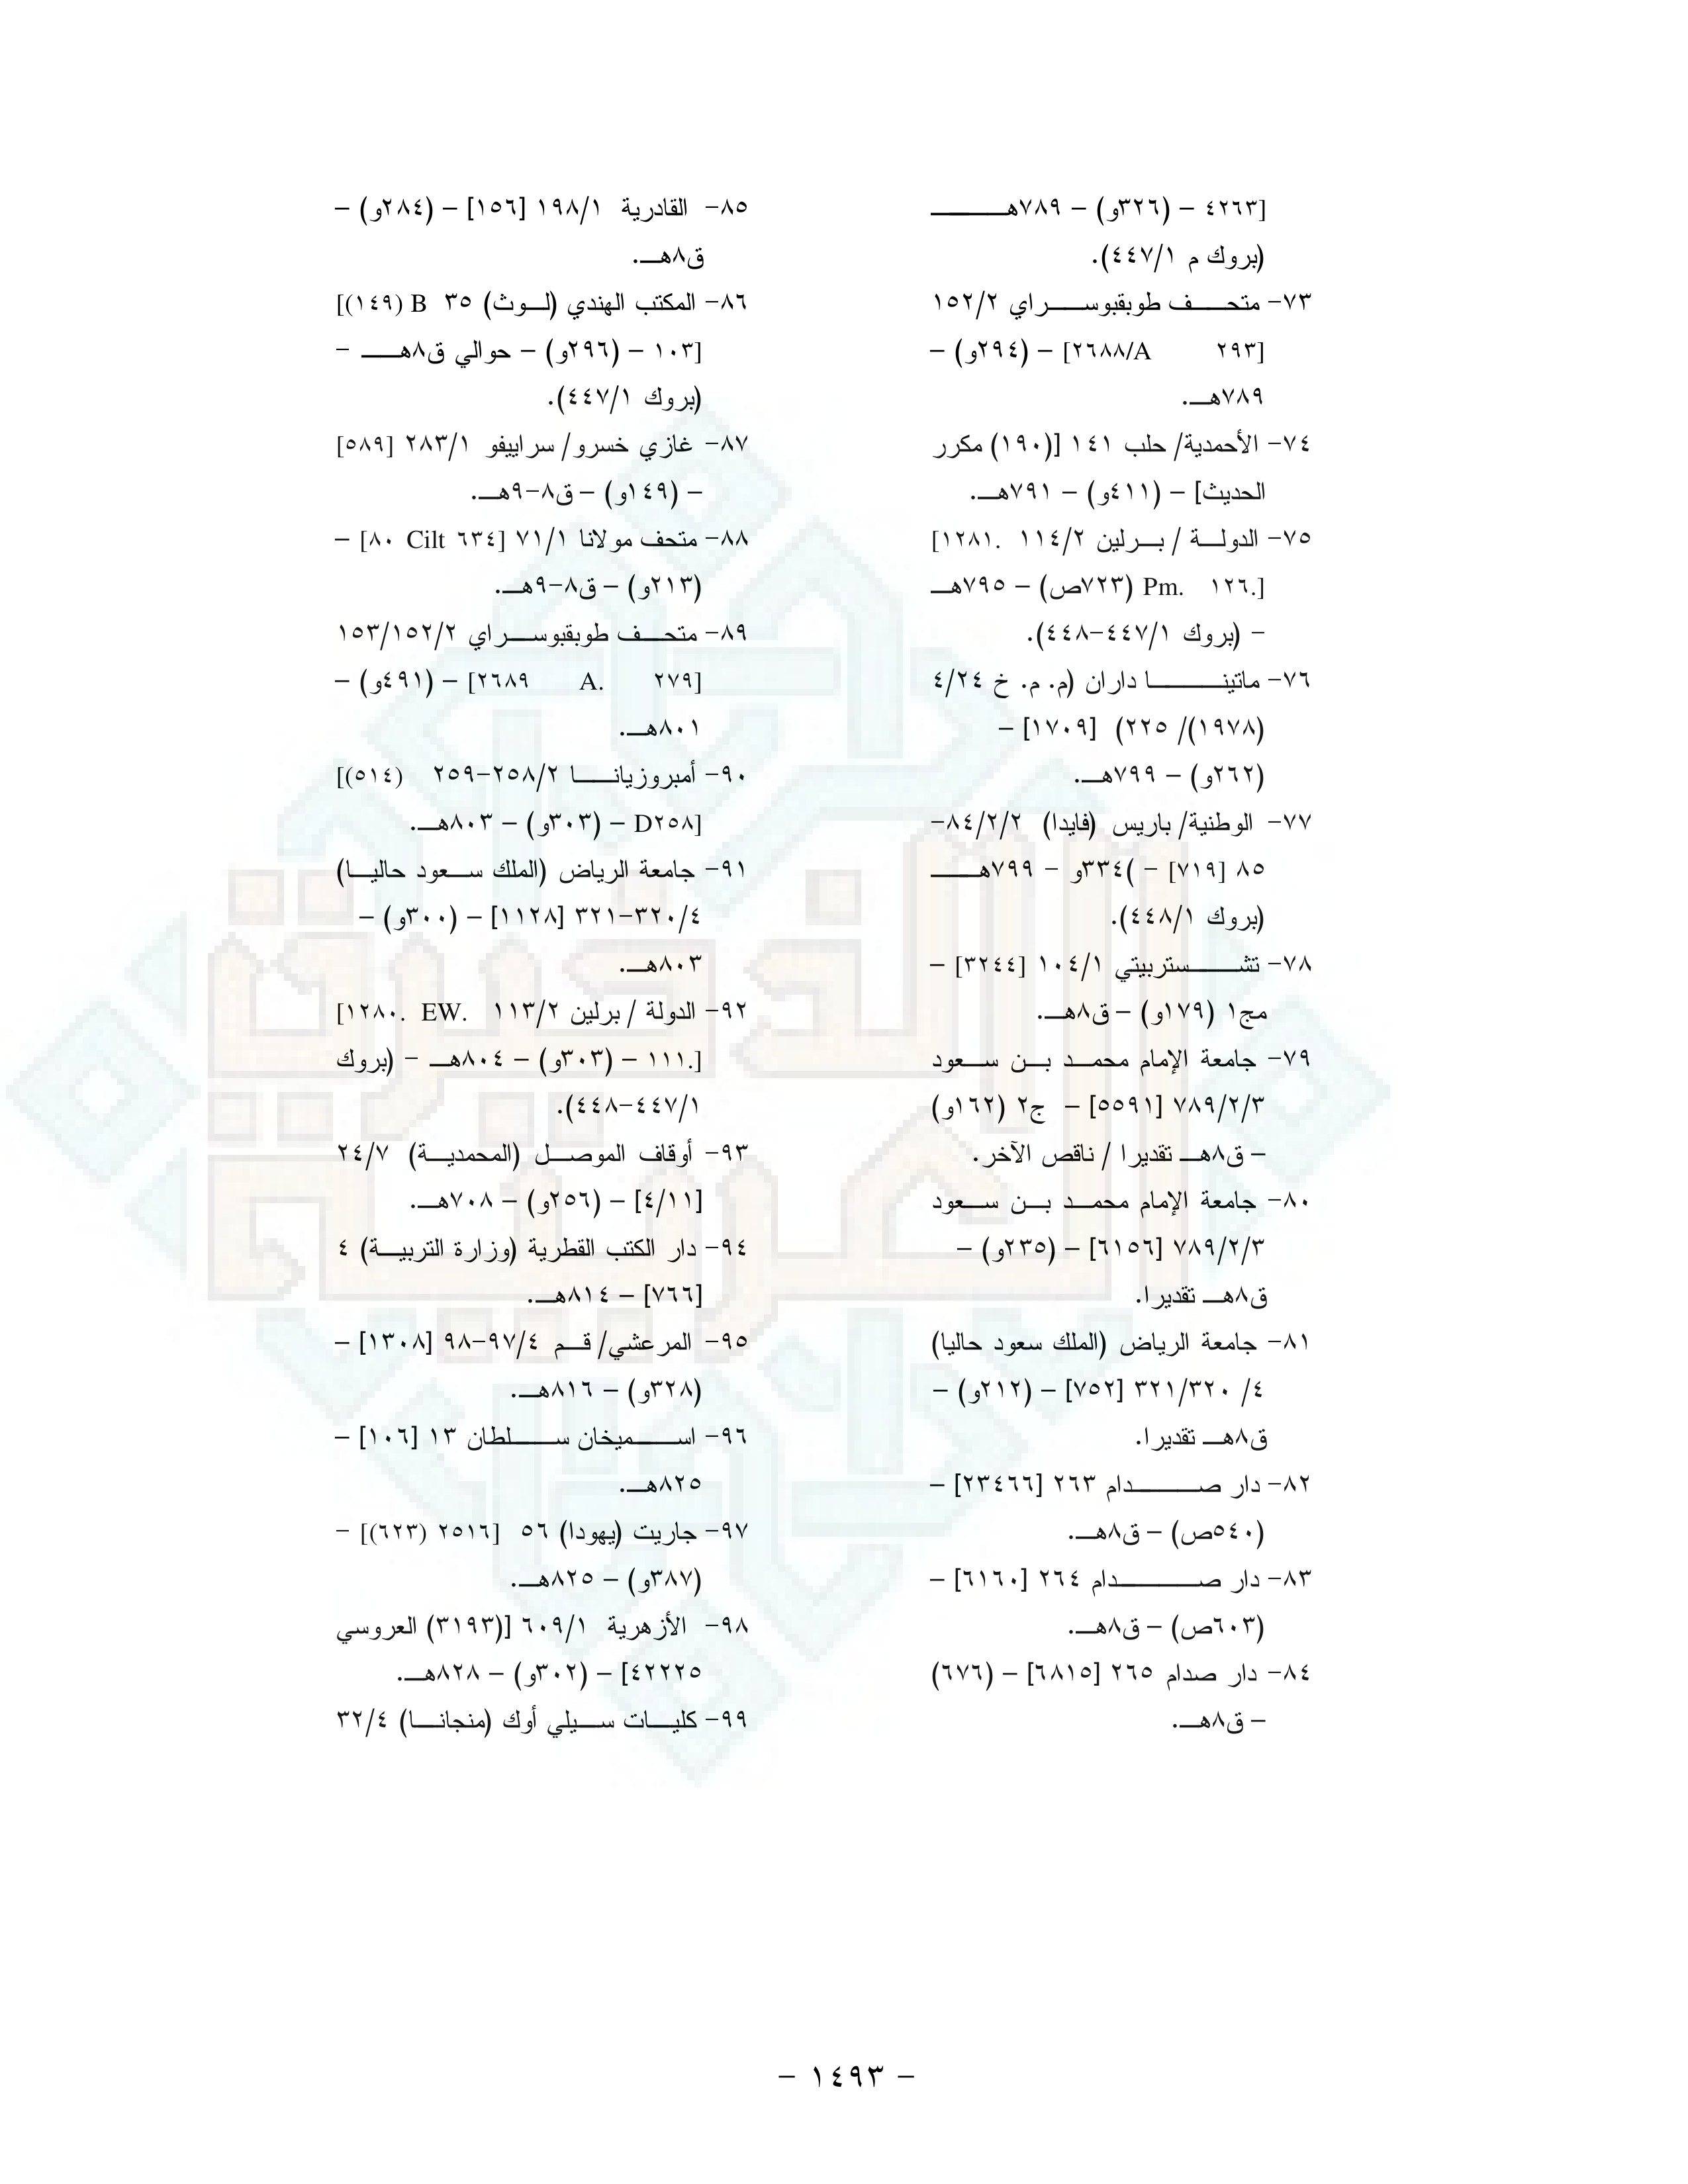 [٤٢٦٣ – (٣٢٦و) – ٧٨٩هـ
(بروك م ٤٤٧/١).
٧٣- متحف طوبقبوسراي ١٥٢/٢
[٢٦٨٨/A ٢٩٣] – (٢٩٤و) –
٧٨٩هـ.
٧٤- الأحمدية/ حلب ١٤١ [(١٩٠) مكرر
الحديث] – (٤١١و) – ٧٩١هـ.
٧٥- الدولة / برلين ١١٤/٢ .١٢٨١]
[.١٢٦ .Pm (٧٢٣ص) – ٧٩٥هـ
– (بروك ٤٤٧/١-٤٤٨).
٧٦- ماتينا داران (م. م. خ ٤/٢٤
(١٩٧٨)/ ٢٢٥) [١٧٠٩] –
(٢٦٢و) – ٧٩٩هـ.
٧٧- الوطنية/ باريس (فايدا) ٨٤/٢/٢-
٨٥ [٧١٩] – )٣٣٤و – ٧٩٩هـ
(بروك ٤٤٨/١).
٧٨- تشستربيتي ١٠٤/١ [٣٢٤٤] –
مج١ (١٧٩و) – ق٨هـ.
٧٩- جامعة الإمام محمد بن سعود
٧٨٩/٢/٣ [٥٥٩١] – ج٢ (١٦٢و)
– ق٨هـ تقديرا / ناقص الآخر.
٨٠- جامعة الإمام محمد بن سعود
٧٨٩/٢/٣ [٦١٥٦] – (٢٣٥و) –
ق٨هـ تقديرا.
٨١- جامعة الرياض (الملك سعود حاليا)
٤/ ٣٢١/٣٢٠ [٧٥٢] – (٢١٢و) –
ق٨هـ تقديرا.
٨٢- دار صدام ٢٦٣ [٢٣٤٦٦] –
(٥٤٠ص) – ق٨هـ.
٨٣- دار صدام ٢٦٤ [٦١٦٠] –
(٦٠٣ص) – ق٨هـ.
٨٤- دار صدام ٢٦٥ [٦٨١٥] – (٦٧٦)
– ق٨هـ.
٨٥- القادرية ١٩٨/١ [١٥٦] – (٢٨٤و) –
ق٨هـ.
٨٦- المكتب الهندي (لوث) ٣٥ B (١٤٩)]
[١٠٣ – (٢٩٦و) – حوالي ق٨هـ –
(بروك ٤٤٧/١).
٨٧- غازي خسرو/ سراييفو ٢٨٣/١ [٥٨٩]
– (١٤٩و) – ق٨-٩هـ.
٨٨- متحف مولانا ٧١/١ [٦٣٤ Cilt ٨٠] –
(٢١٣و) – ق٨-٩هـ.
٨٩- متحف طوبقبوسراي ١٥٣/١٥٢/٢
[٢٦٨٩ A. ٢٧٩] – (٤٩١و) –
٨٠١هـ.
٩٠- أمبروزيانا ٢٥٨/٢-٢٥٩ (٥١٤)]
[D٢٥٨ – (٣٠٣و) – ٨٠٣هـ.
٩١- جامعة الرياض (الملك سعود حاليا)
٣٢٠/٤-٣٢١ [١١٢٨] – (٣٠٠و) –
٨٠٣هـ.
٩٢- الدولة / برلين ١١٣/٢ .EW .١٢٨٠]
[.١١١ – (٣٠٣و) – ٨٠٤هـ – (بروك
٤٤٧/١-٤٤٨).
٩٣- أوقاف الموصل (المحمدية) ٢٤/٧
[٤/١١] – (٢٥٦و) – ٧٠٨هـ.
٩٤- دار الكتب القطرية (وزارة التربية) ٤
[٧٦٦] – ٨١٤هـ.
٩٥- المرعشي/ قم ٩٧/٤-٩٨ [١٣٠٨] –
(٣٢٨و) – ٨١٦هـ.
٩٦- اسميخان سلطان ١٣ [١٠٦] –
٨٢٥هـ.
٩٧- جاريت (يهودا) ٥٦ [٢٥١٦ (٦٢٣)] –
(٣٨٧و) – ٨٢٥هـ.
٩٨- الأزهرية ٦٠٩/١ [(٣١٩٣) العروسي
٤٢٢٢٥] – (٣٠٢و) – ٨٢٨هـ.
٩٩- كليات سيلي أوك (منجانا) ٣٢/٤
– ١٤٩٣ –